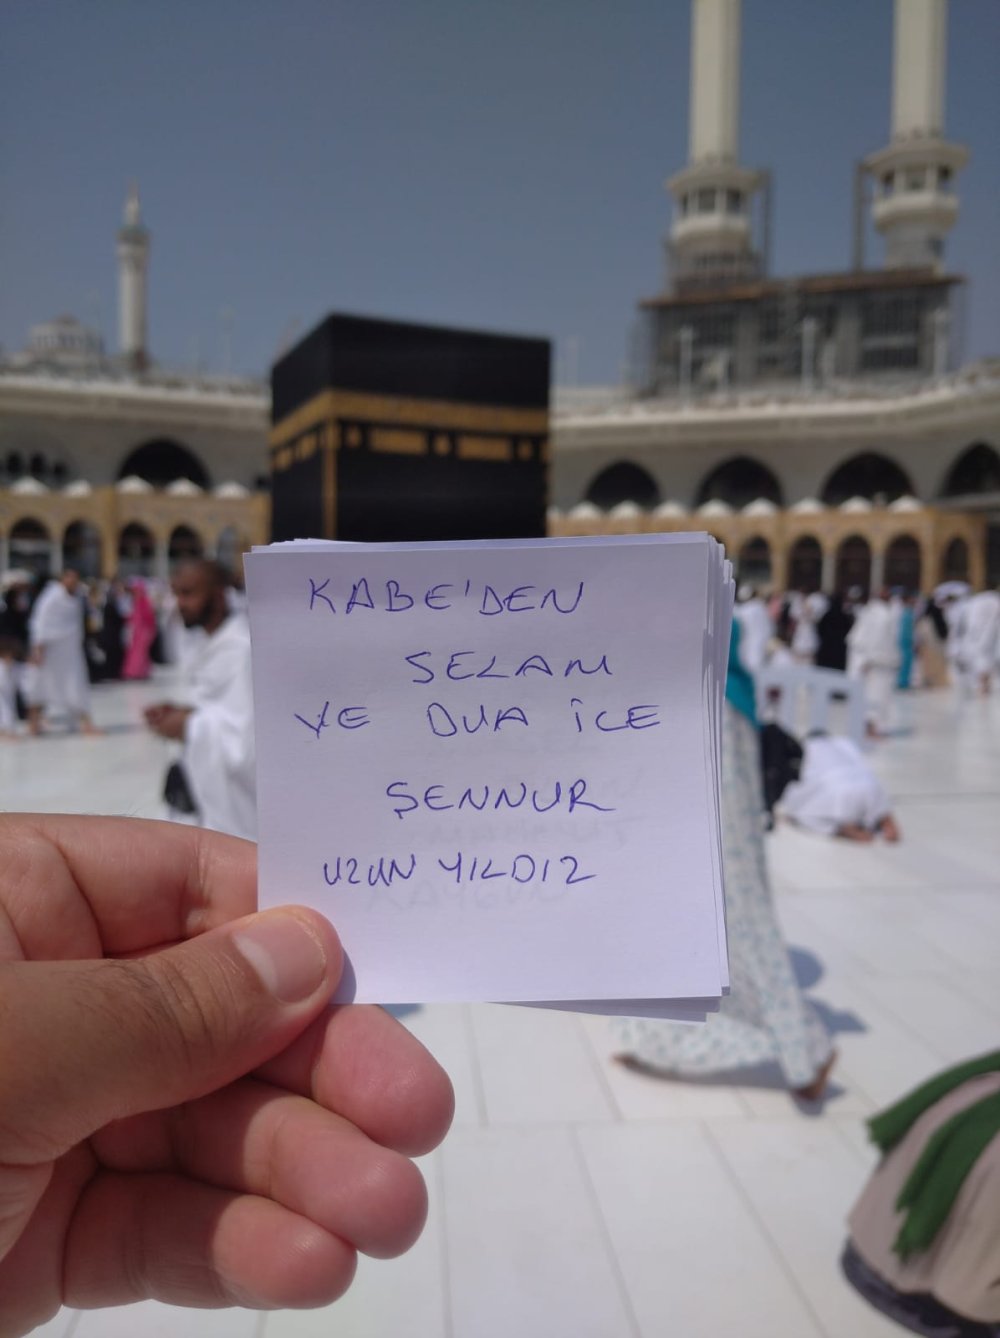 KABE'DEN
SELAM
VE DUA İLE
ŞENNUR
UZUN YILDIZ